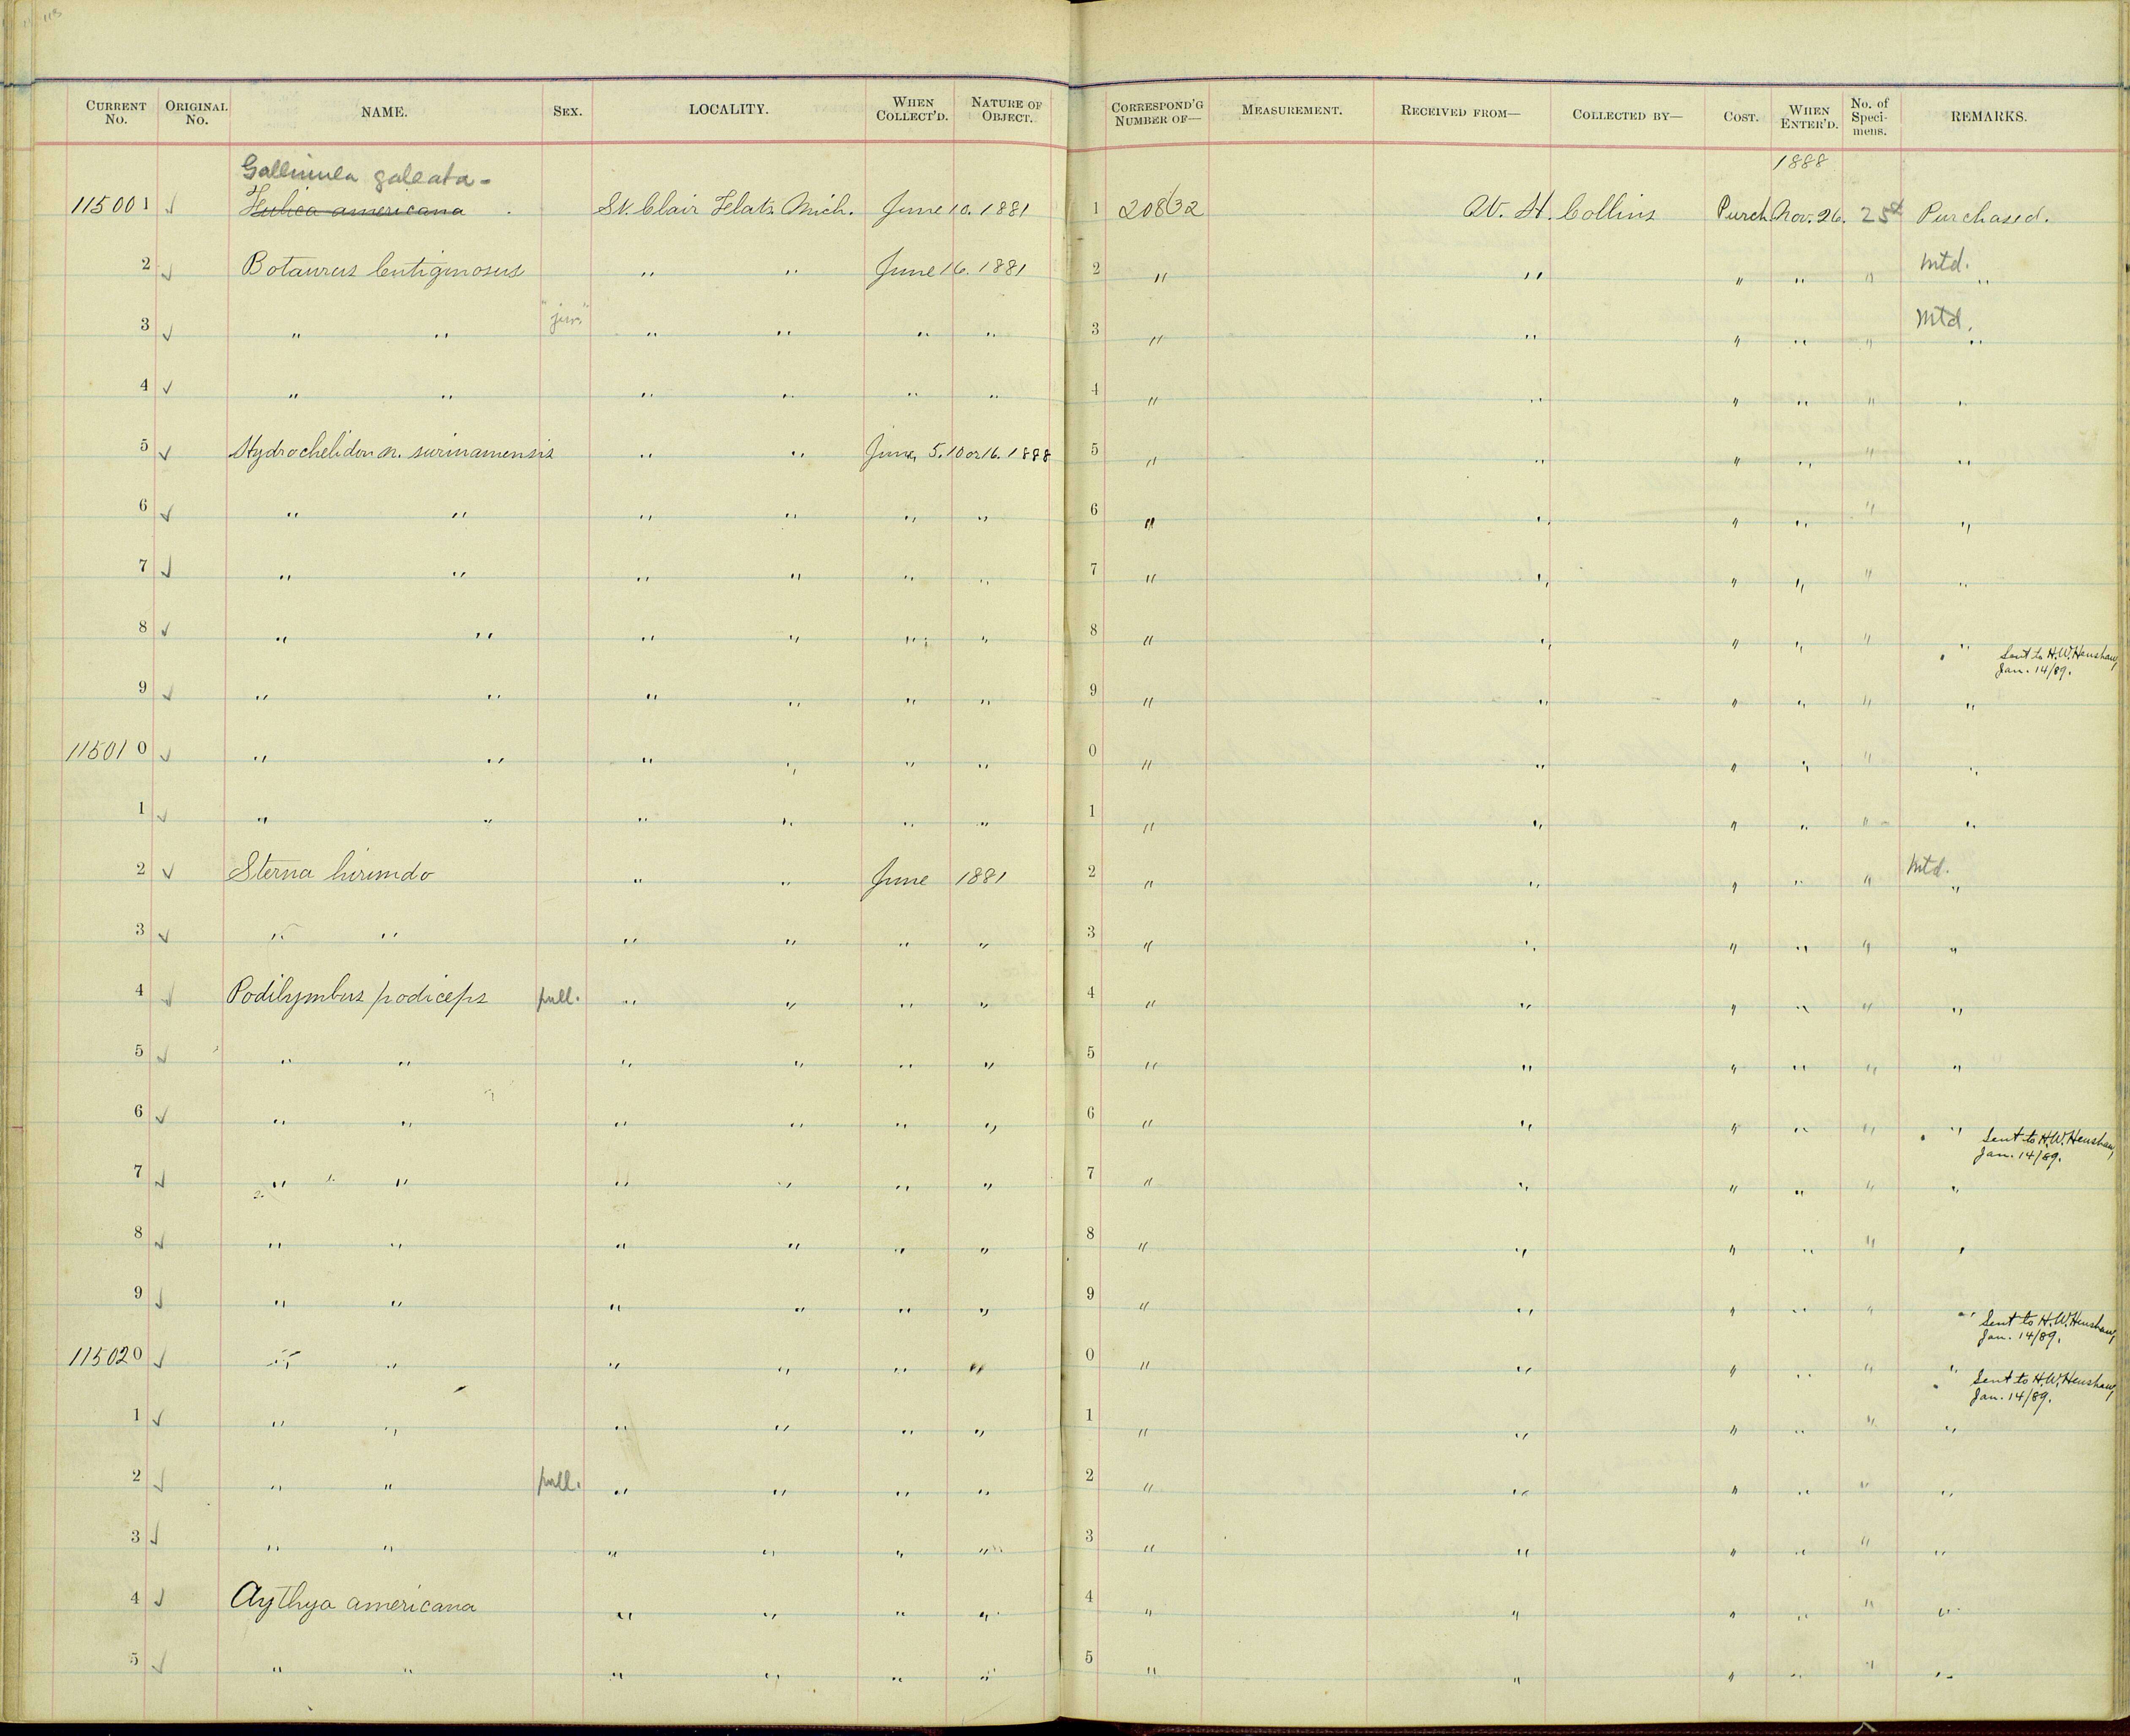 113
CURRENT No. ORIGINAL No. NAME. SEX. LOCALITY. WHEN COLLECT'D. NATURE OF OBJECT. CORRESPOND'G NUMBER OF— MEASUREMENT. RECEIVED FROM— COLLECTED BY— COST. WHEN ENTER'D. No. of Speci- mens. REMARKS.
1888
Gallinula galeata -
115001 ✓ Fulica americana . St. Clair Flats Mich. June 10. 1881 1 20832 W. H. Collins Purch. Nov. 26. Purchased.
2 ✓ Botaurus lentiginosus " " June 16. 1881 2 " " " " " Mtd. "
3 ✓ " " "juv." " " " " 3 " " " " " Mtd. "
4 ✓ " " " " " " 4 " " " " " "
5 ✓ Hydrochelidon n. surinamensis " " June, 5. 10 or 16. 1888 5 " " " " " "
6 ✓ " " " " " " 6 " " " " " "
7 ✓ " " " " " " 7 " " " " " "
8 ✓ " " " " " " 8 " " " " " " Sent to H.W. Henshaw, Jan. 14/89.
9 ✓ " " " " " " 9 " " " " " "
115010 ✓ " " " " " " 0 " " " " " "
1 ✓ " " " " " " 1 " " " " " "
2 ✓ Sterna hirundo " " June 1881 2 " " " " " Mtd. "
3 ✓ " " " " " " 3 " " " " " "
4 ✓ Podilymbus podiceps pull. " " " " 4 " " " " " "
5 ✓ " " " " " " 5 " " " " " "
6 ✓ " " " " " " 6 " " " " " " Sent to H.W. Henshaw, Jan. 14/89.
7 ✓ " " " " " " 7 " " " " " "
8 ✓ " " " " " " 8 " " " " " "
9 ✓ " " " " " " 9 " " " " " " Sent to H.W. Henshaw, Jan. 14/89.
115020 ✓ " " " " " " 0 " " " " " " Sent to H.W. Henshaw, Jan. 14/89.
1 ✓ " " " " " " 1 " " " " " "
2 ✓ " " pull. " " " " 2 " " " " " "
3 ✓ " " " " " " 3 " " " " " "
4 ✓ Aythya americana " " " " 4 " " " " " "
5 ✓ " " " " " " 5 " " " " " "